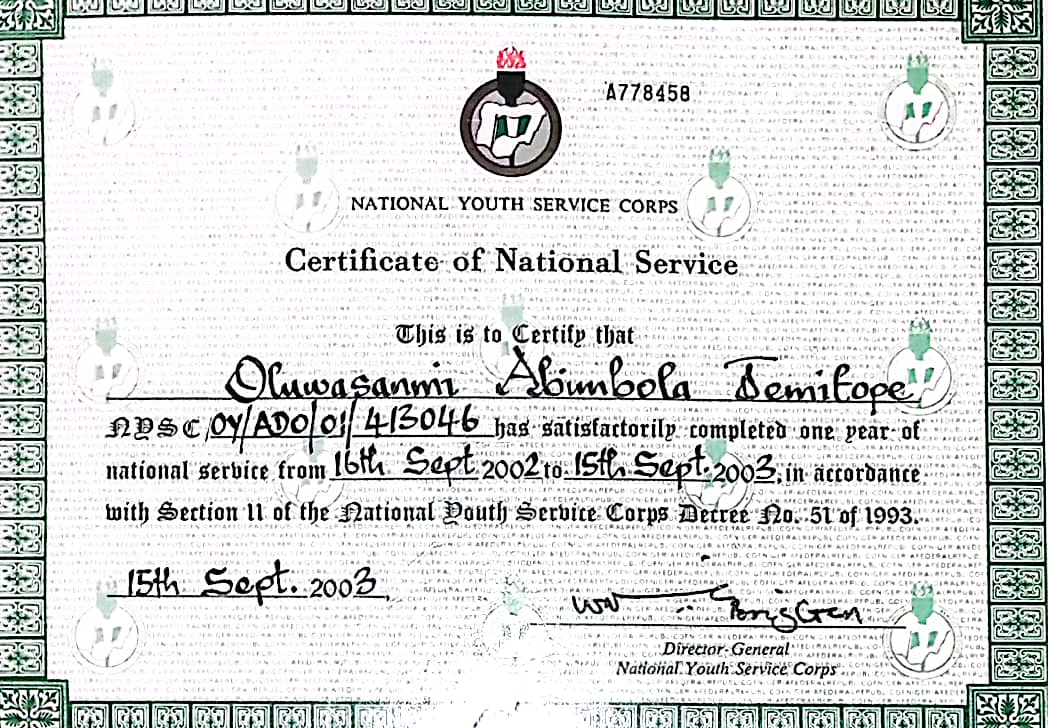 A778458
NATIONAL YOUTH SERVICE CORPS
Certificate of National Service
This is to Certify that
Oluwasanmi Abimbola Temitope
NYSC/OY/ADO/01/413046 has satisfactorily completed one year of
national service from 16th Sept 2002 to 15th Sept. 2003, in accordance
with Section 11 of the National Youth Service Corps Decree No. 51 of 1993.
15th Sept. 2003
Brig Gen
Director-General
National Youth Service Corps